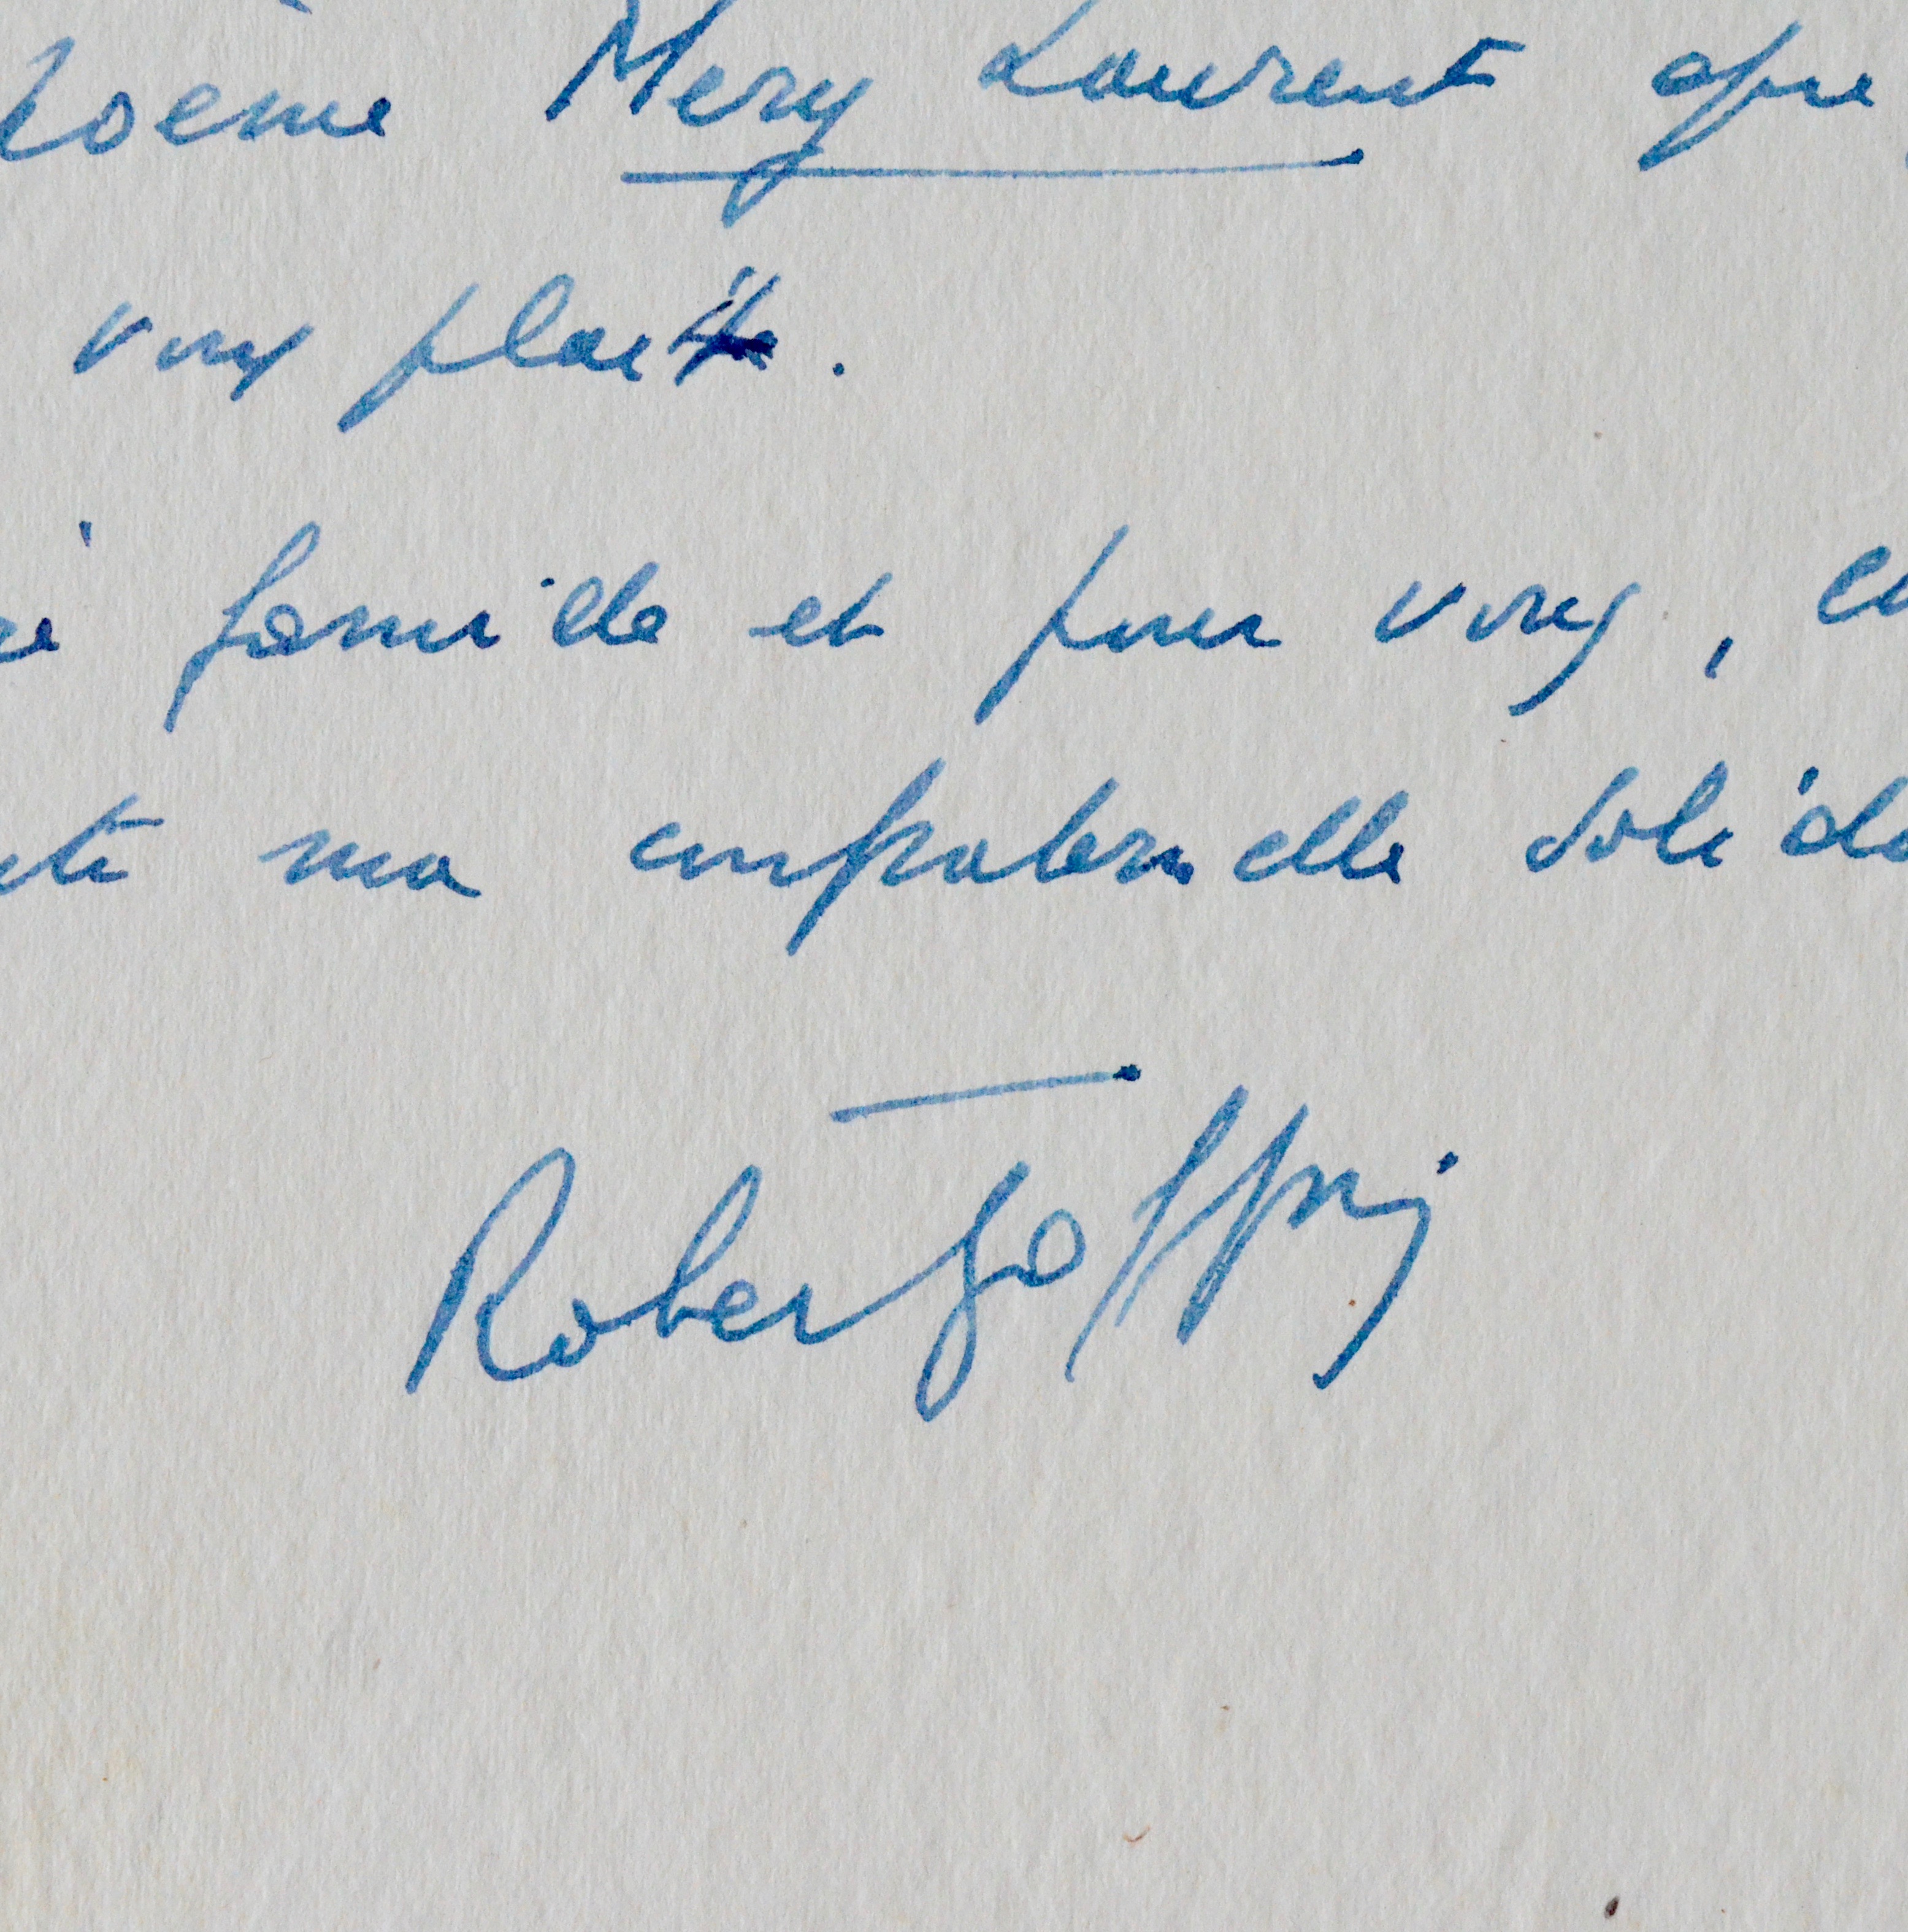 poème Mery Laurent que
vous plaît.
famille et pour vous,
ma confraternelle solida
Robert Goffin